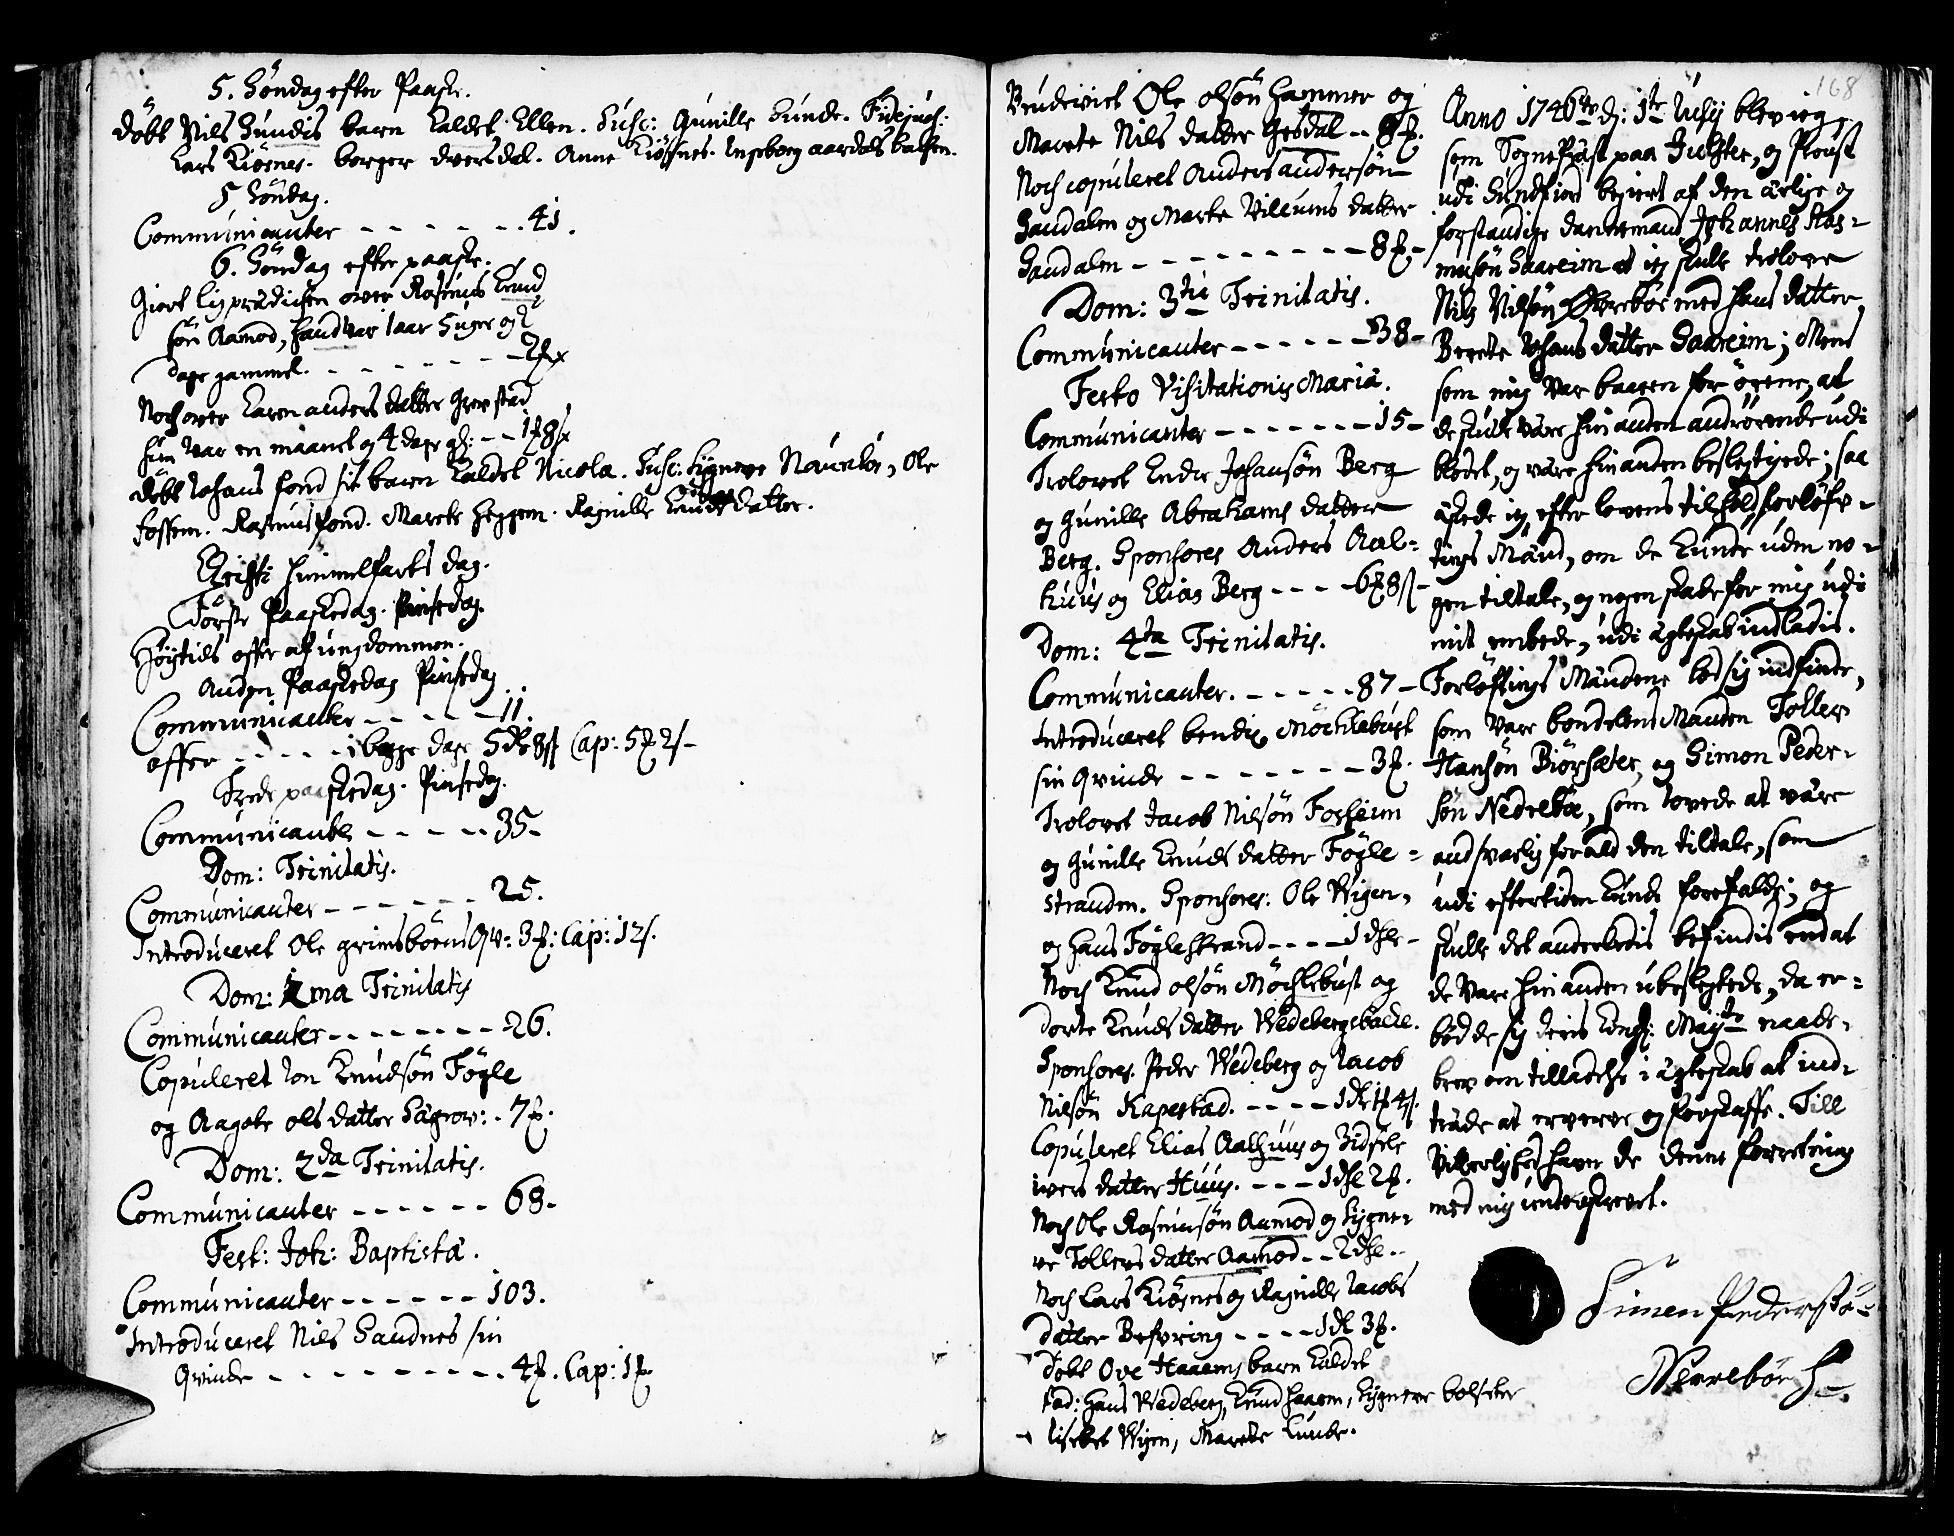 5. Søndag efter Paaske.
døbt Nils Sundis barn kaldet Ellen. Susc: Gunille Sunde. Fidejuss:
Lars Kiøsnes. berger dversdal. Anne Kiøsnes. Ingeborg aardals balsen.
5 Søndag.
Communicanter - - - - - - 41.
6. Søndag efter paaske.
Giort ligprædichen over Rasmus Knud
søn Aamod, hand var 1 aar 5 uger og 2
dage gammel. - - - - - - - 2
Noch over Karen anders datter Grevstad
hun var en maanet og 4 dage gl: - - 1 8
døbt Johans fond sit barn kaldet Nicola. Susc: Sygneve Naustdr, Ole
fossem. Rasmus fond. Marete heggem. Ragnille Knuds datter.
Christi himmelfarts dag.
Første Paaskedag. Pinsedag.
Høytids offer af ungdommen.
Anden Paaskedag Pinsedag
Communicanter - - - - - 11.
offer - - - - i begge dage 5 dlr 8 Cap: 5 2
Tredie paaskedag. Pinsedag.
Communicanter - - - - - 35-
Dom: Trinitatis.
Communicanter - - - - - - 25.
Introduceret Ole grimsbøens Qv: 3 : Cap: 12
Dom: 1ma Trinitatis
Communicanter - - - - - - - 26.
Copuleret Jon Knudsøn Føgle
og Aagote ols datter Sægrov: - 7
Dom: 2da Trinitatis.
Communicanter - - - - - - 68-
Fest: Joh: Baptistæ.
Communicanter - - - - - - 103.
Introduceret Nils Sandnes sin
Qvinde - - - - - - - - - - 4 . Cap: 1
Brudeviet Ole olsøn hammer og
Marete Nils datter Gesdal - - 8
Noch copuleret Anders andersøn
Sandalen og Marte Villums datter
Sandalen - - - - - - - - - - 8 -
Dom: 3tia Trinitatis.
Communicanter - - - - - - 38-
Festo Visitationis Mariæ.
Communicanter - - - - - - - 15-
Trolovet Endre Johansøn Berg
og gunille Abrahams datter
Berg. Sponsores Anders Aal-
huus og Elias Berg - - - - 6 8
Dom: 4ta Trinitatis.
Communicanter. - - - - - 87-
Introduceret bendix Møchlebust
sin Qvinde - - - - - - - - 3
Trolovet Jacob Nilsøn Fosheim
og gunille Knuds datter Føgle-
stranden. Sponsores: Ole Wigen,
og hans Føglestrand - - - - 1 dlr-
Noch Knud olsøn Møchlebust og
dorte Knuds datter Wedebergsbacke.
Sponsores. Peder Wedeberg og Jacob
Nilsøn Kapestad. - - - - 1 dlr 1 4
Copuleret Elias Aalhuus og Zidsele
ivers datter Huus. - - - 1 dlr 2
Noch Ole Rasmusøn Aamod og Sygne-
ve Tollevs datter Aamod - - 2 dlr -
Noch Lars Kiøsnes og Ragnille Jacobs
datter Befring - - - - 1 dlr 3
Døbt Ove Haaems barn kaldet
tad: hans Wedeberg, Knud haaem, Sygneve bolseter
lisebet Wigen, Marete Lunde.
168
Anno 1746 d: 1te Julij blev ieg
som Sognepræst paa Julster, og Proust
udi Sundfiord begiert af den ærlige og
forstandige dannemand Johannes Ras-
musøn Saareim at ieg skulle trolove
Nils Nilsøn Øvrebøe med hans datter
Berete Johans datter Saareim; Mens
som mig var baaren for ørene, at
de skulde være hinanden andrørende udi
blodet, og være hinanden beslegtgede; saa
æskede ieg efter lovens tilhold forløfv-
tings Mænd, om de kunde uden no-
gen tiltale, og nogen skade for mig udi
mit embede, udi ægteskab indladis.
Forløftings Mændene lod sig indfinde,
som vare bondelens Manden Tollev
Hansøn Biørsæter, og Simon Peder-
søn Nedrebøe, som lovede at være
andsvarlig for ald den tiltale, som
udi eftertiden kunde forefalde; og
skulle det anderledis befindis end at
de vare hinanden ubeslegtede, da er-
bød de sig deris kongl: Mayts naade-
brev om tilladelse i ægteskab at ind-
træde at erverve og forskaffe. Till
Vitterlighed have de denne forretning
med mig underskrevet.
Simen Pedersøn
Nerrebøe